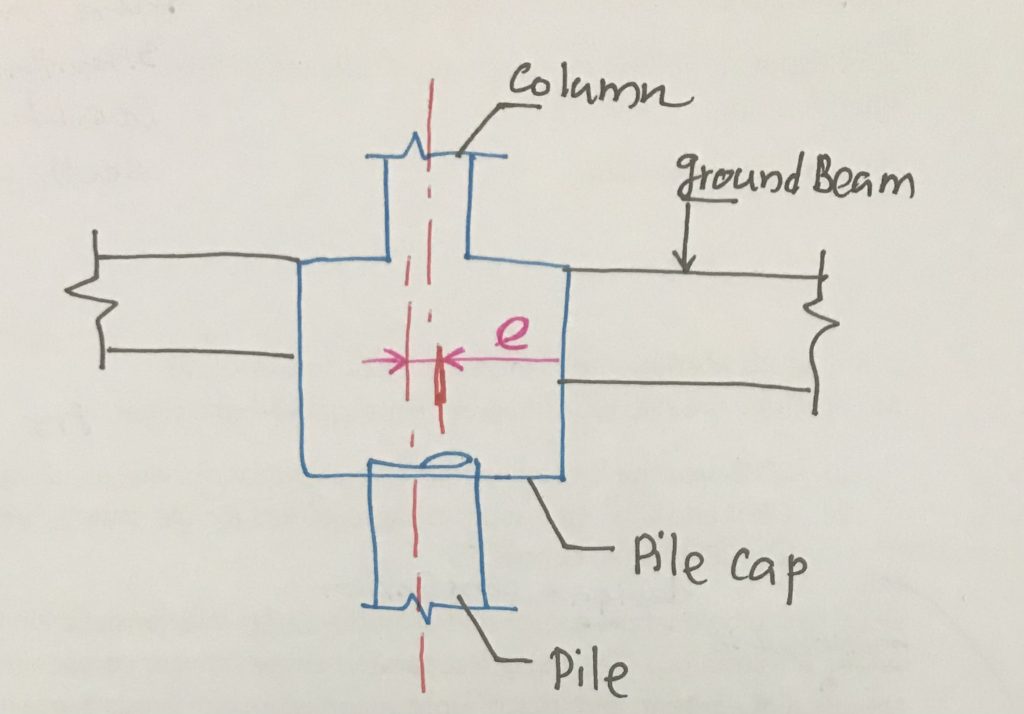 Column
ground Beam
e
Pile cap
Pile